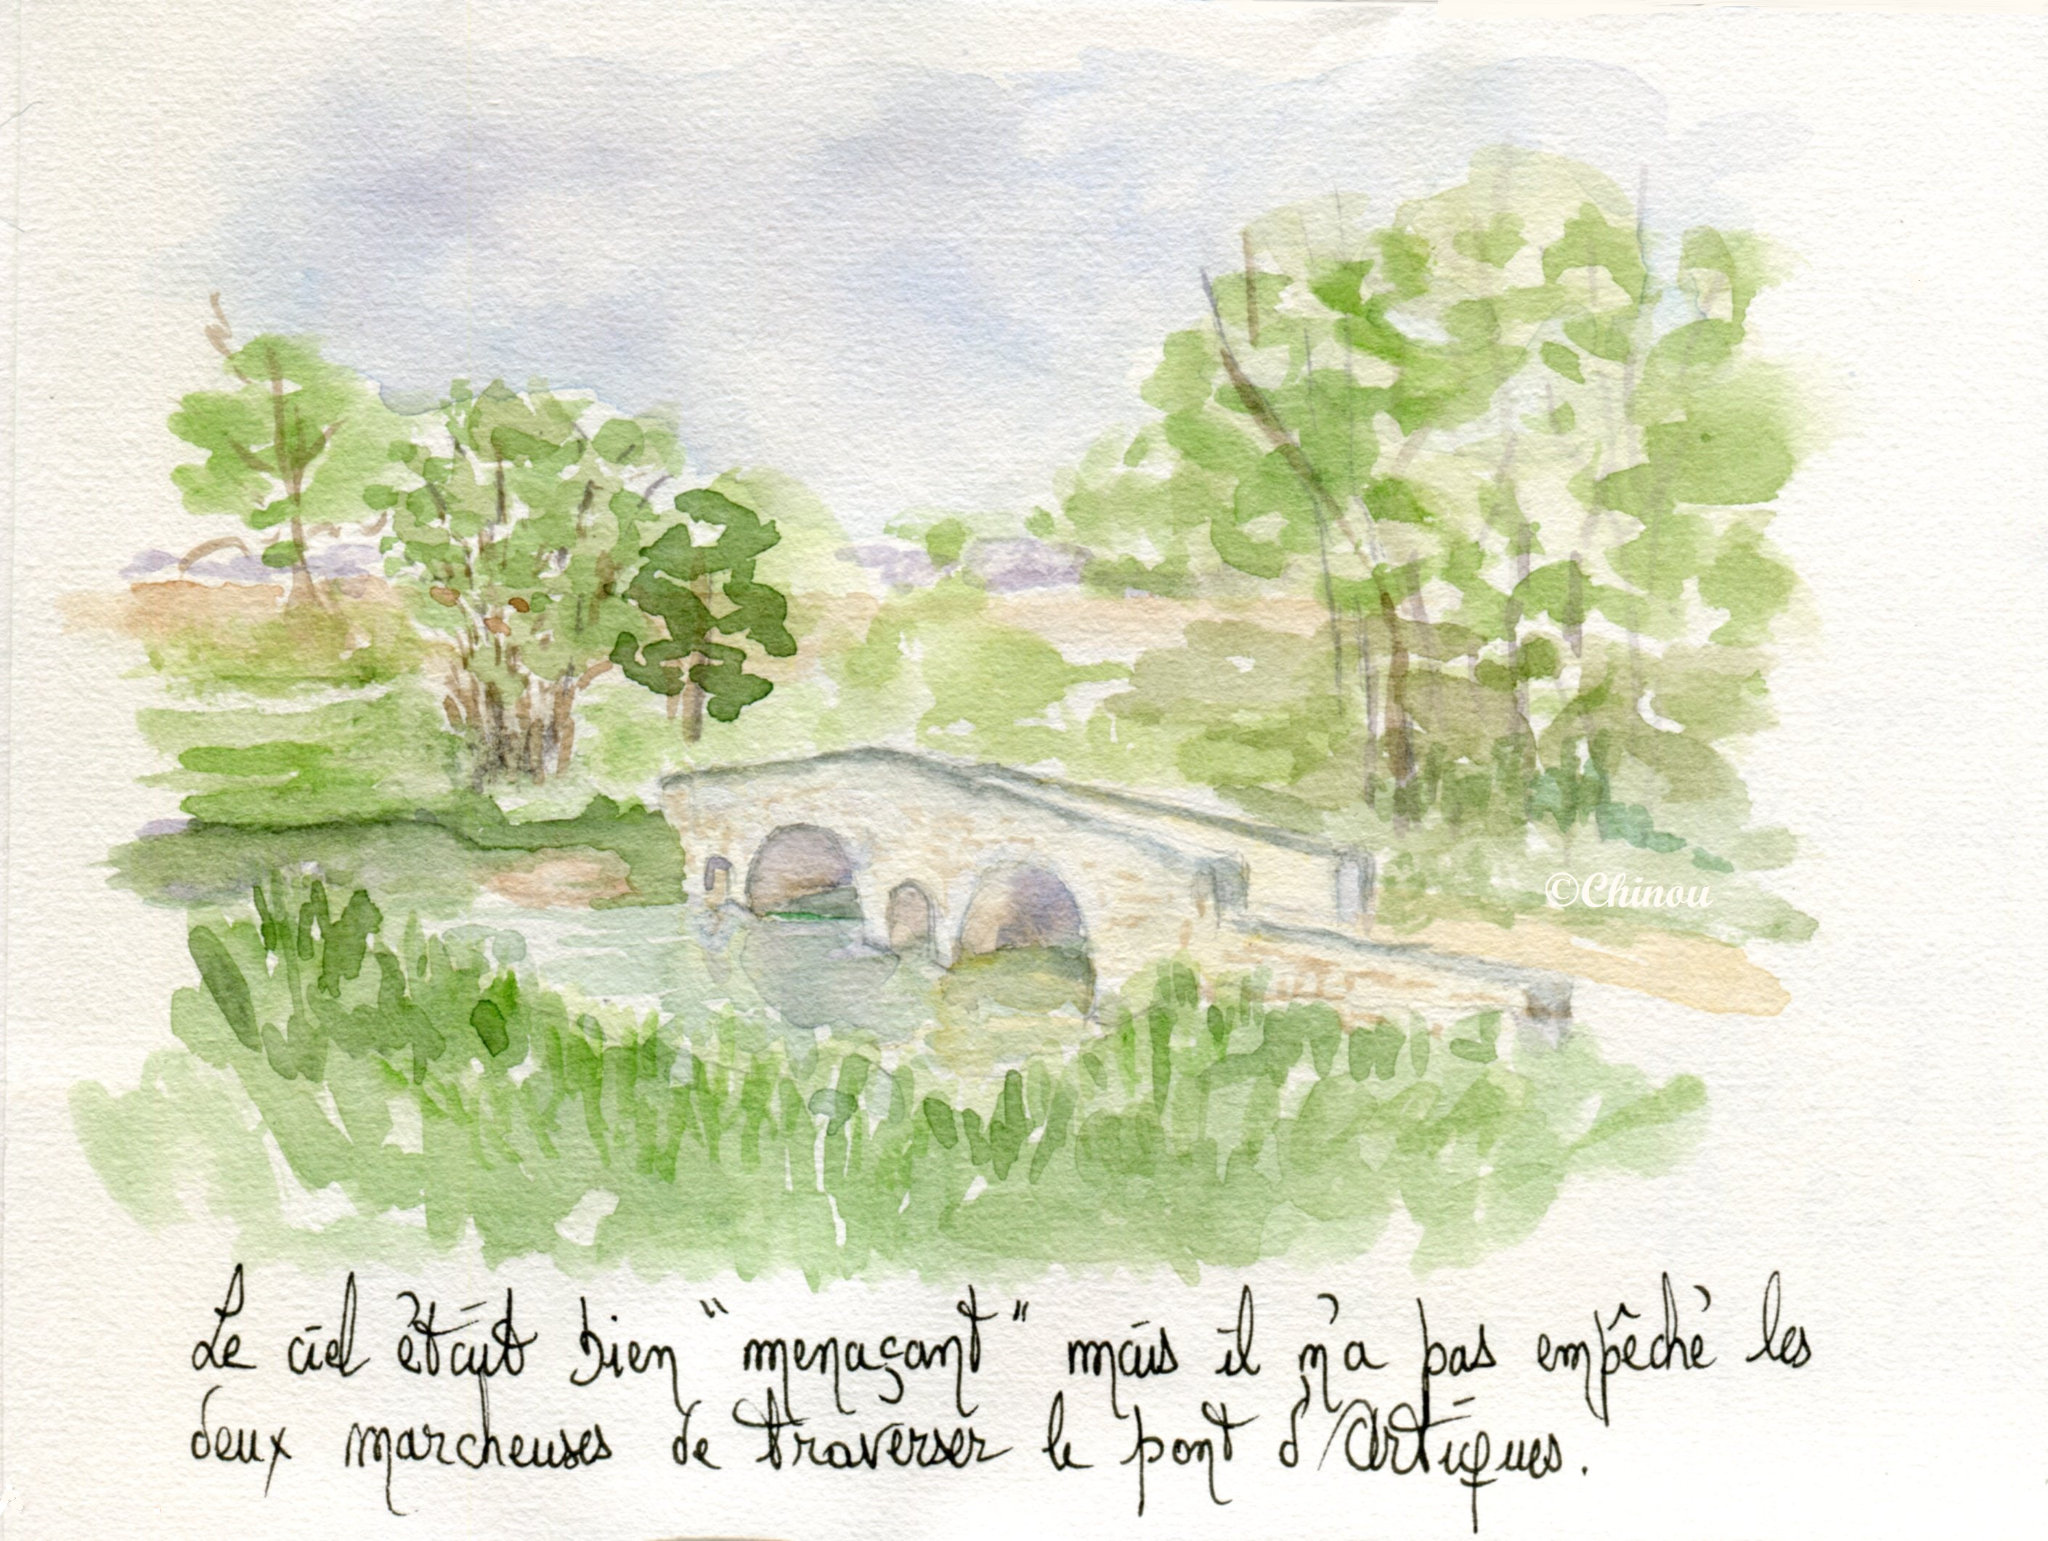 ©Chinou
Le ciel était bien "menaçant" mais il n'a pas empêché les
deux marcheuses de traverser le pont d'Artigues.